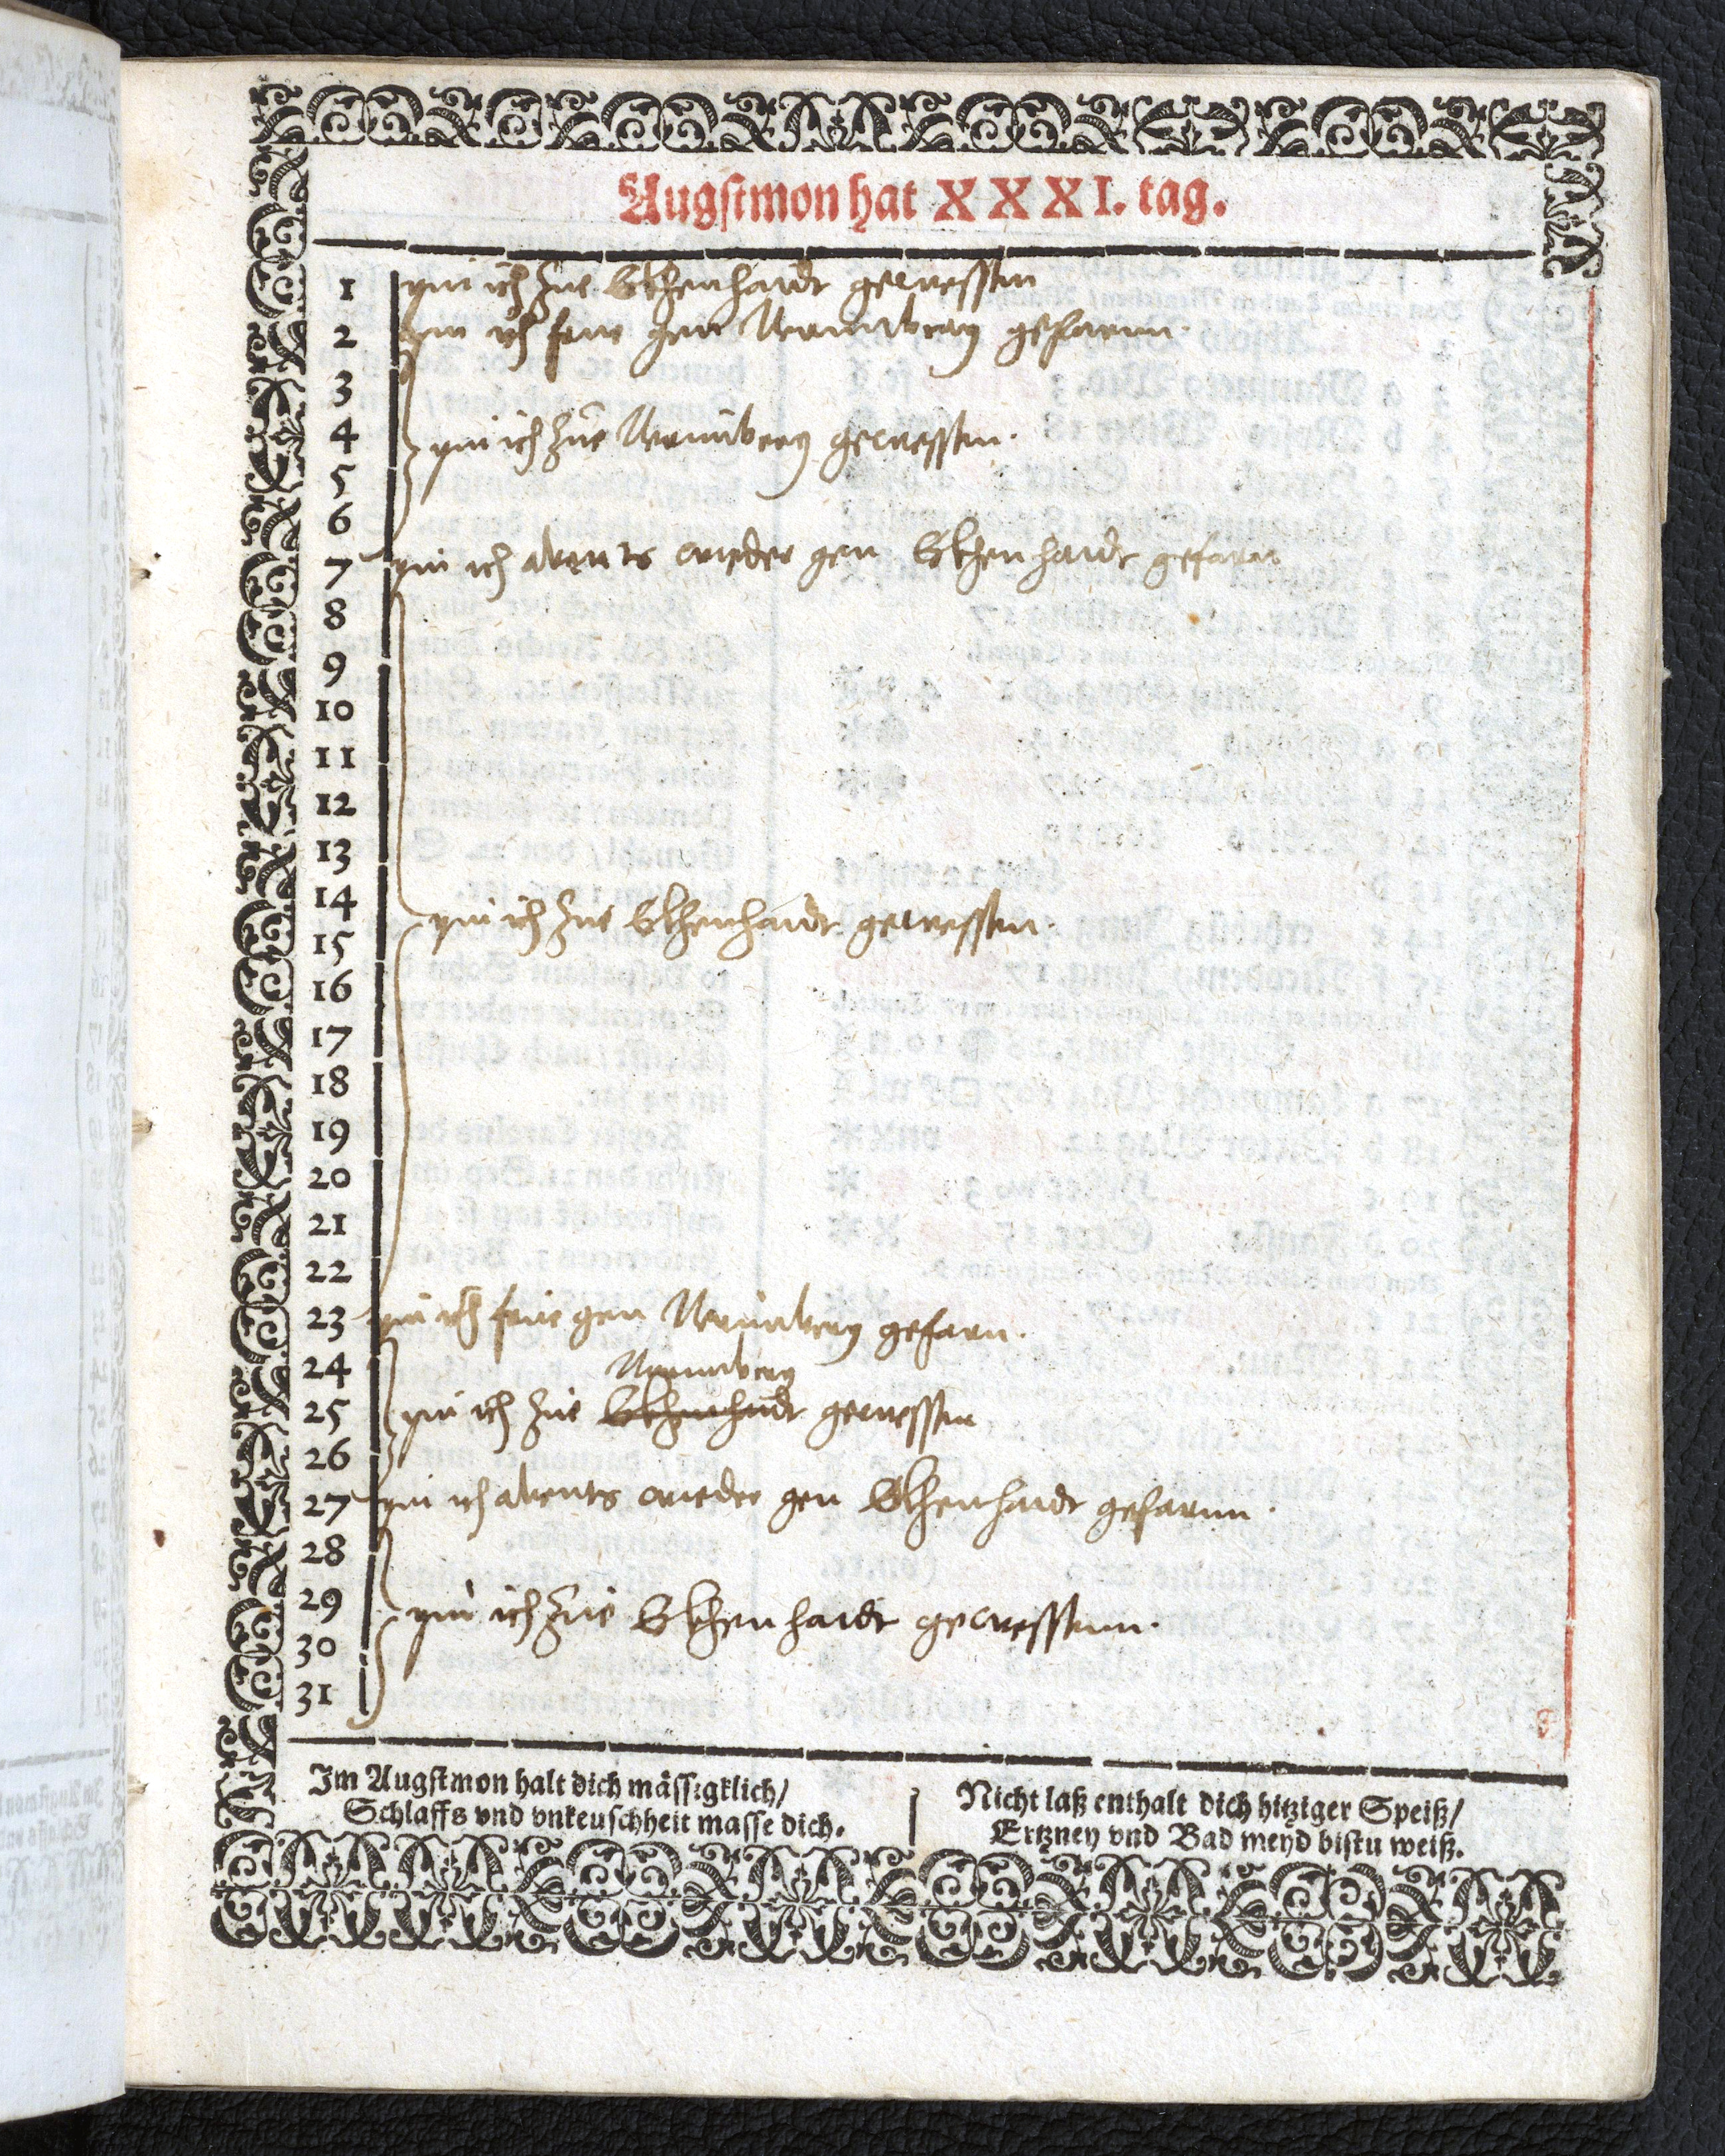 Augstmon hat XXXI. tag.
1 pin ich zue Ekhenhaidt gewessen
2 pin ich frue gen Nurmberg gefarnn.
3
4 pin ich zue Nurmberg gewessen.
5
6
7 pin ich abents wieder gen Ekhenhaidt gefarn
8
9
10
11
12
13
14 pin ich zue Ekhenhaidt gewessen.
15
16
17
18
19
20
21
22
23 pin ich frue gen Nurmberg gefarn.
24 Nurmberg
25 pin ich zue Ekhenhaidt gewessen
26
27 pin ich abents wieder gen Ekhenhaidt gefarnn.
28
29 pin ich zue Ekhenhaidt gewessenn.
30
31
Im Augstmon halt dich mässigklich/
Schlaffs vnd vnkeuschheit masse dich.
Nicht laß enthalt dich hitziger Speiß/
Ertzney vnd Bad meyd bistu weiß.